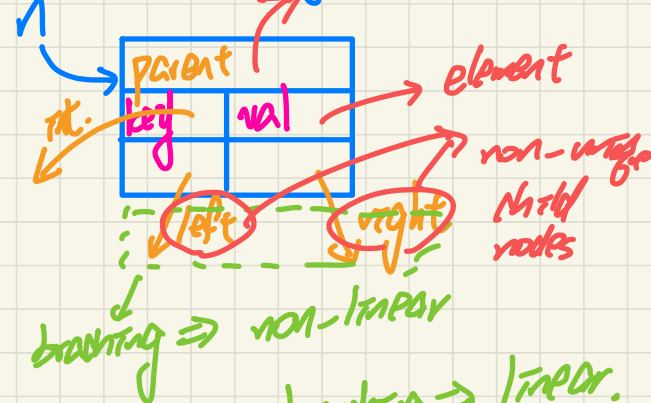 n
parent
key val
element
int.
left right
non-unique
child
nodes
branching ⇒ non-linear
linear.